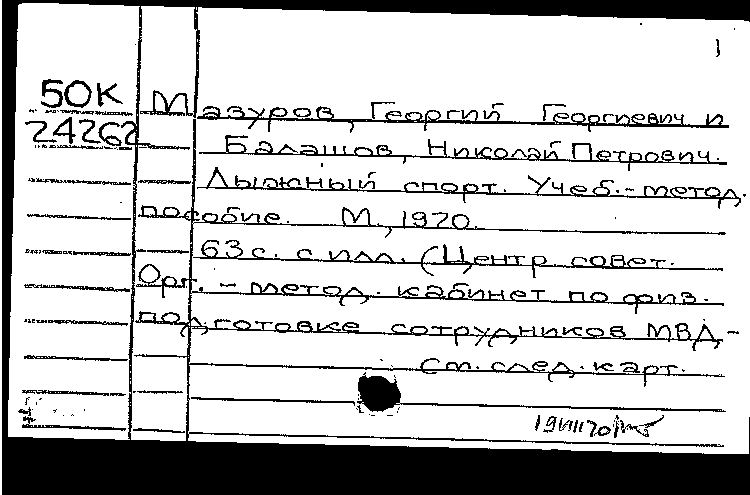 1
50К
24262
Мазуров, Георгий Георгиевич и
Балашов, Николай Петрович.
Лыжный спорт. Учеб.-метод.
пособие. М., 1970.
63 с. с илл. (Центр совет.
Орг.-метод. кабинет по физ.
подготовке сотрудников МВД,-
См. след. карт.